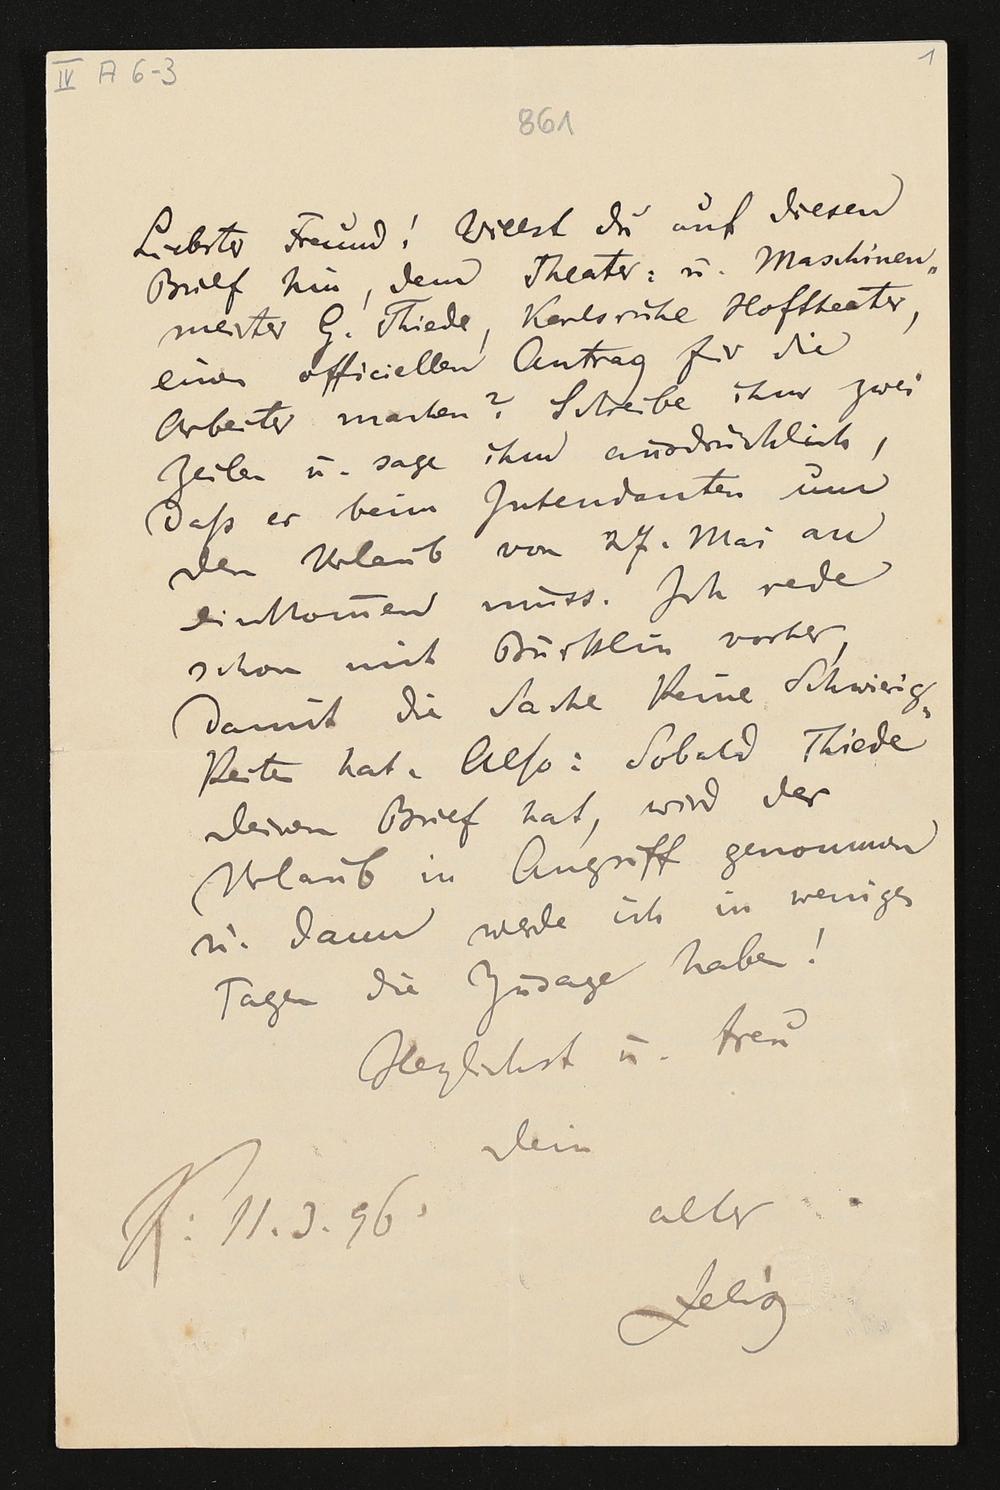 IV A 6-3
1
861
Liebster Freund! Willst du auf diesen
Brief hin, dem Theater= u. Maschinen„
meister G. Thiede, Karlsruhe Hoftheater,
einen officiellen Antrag für die
Arbeiter machen? Schreibe ihm zwei
Zeilen u. sage ihm ausdrücklich,
daß er beim Intendanten um
den Urlaub von 27. Mai an
einkom̅en muss. Ich rede
schon mit Bürklin vorher,
damit die Sache keine Schwierig„
keiten hat. Also: Sobald Thiede
deinen Brief hat, wird der
Urlaub in Angriff genommen
u. dann werde ich in wenigen
Tagen die Zusage haben!
Herzlichst u. treu
dein
alter
K: 11.3.96.
Felix